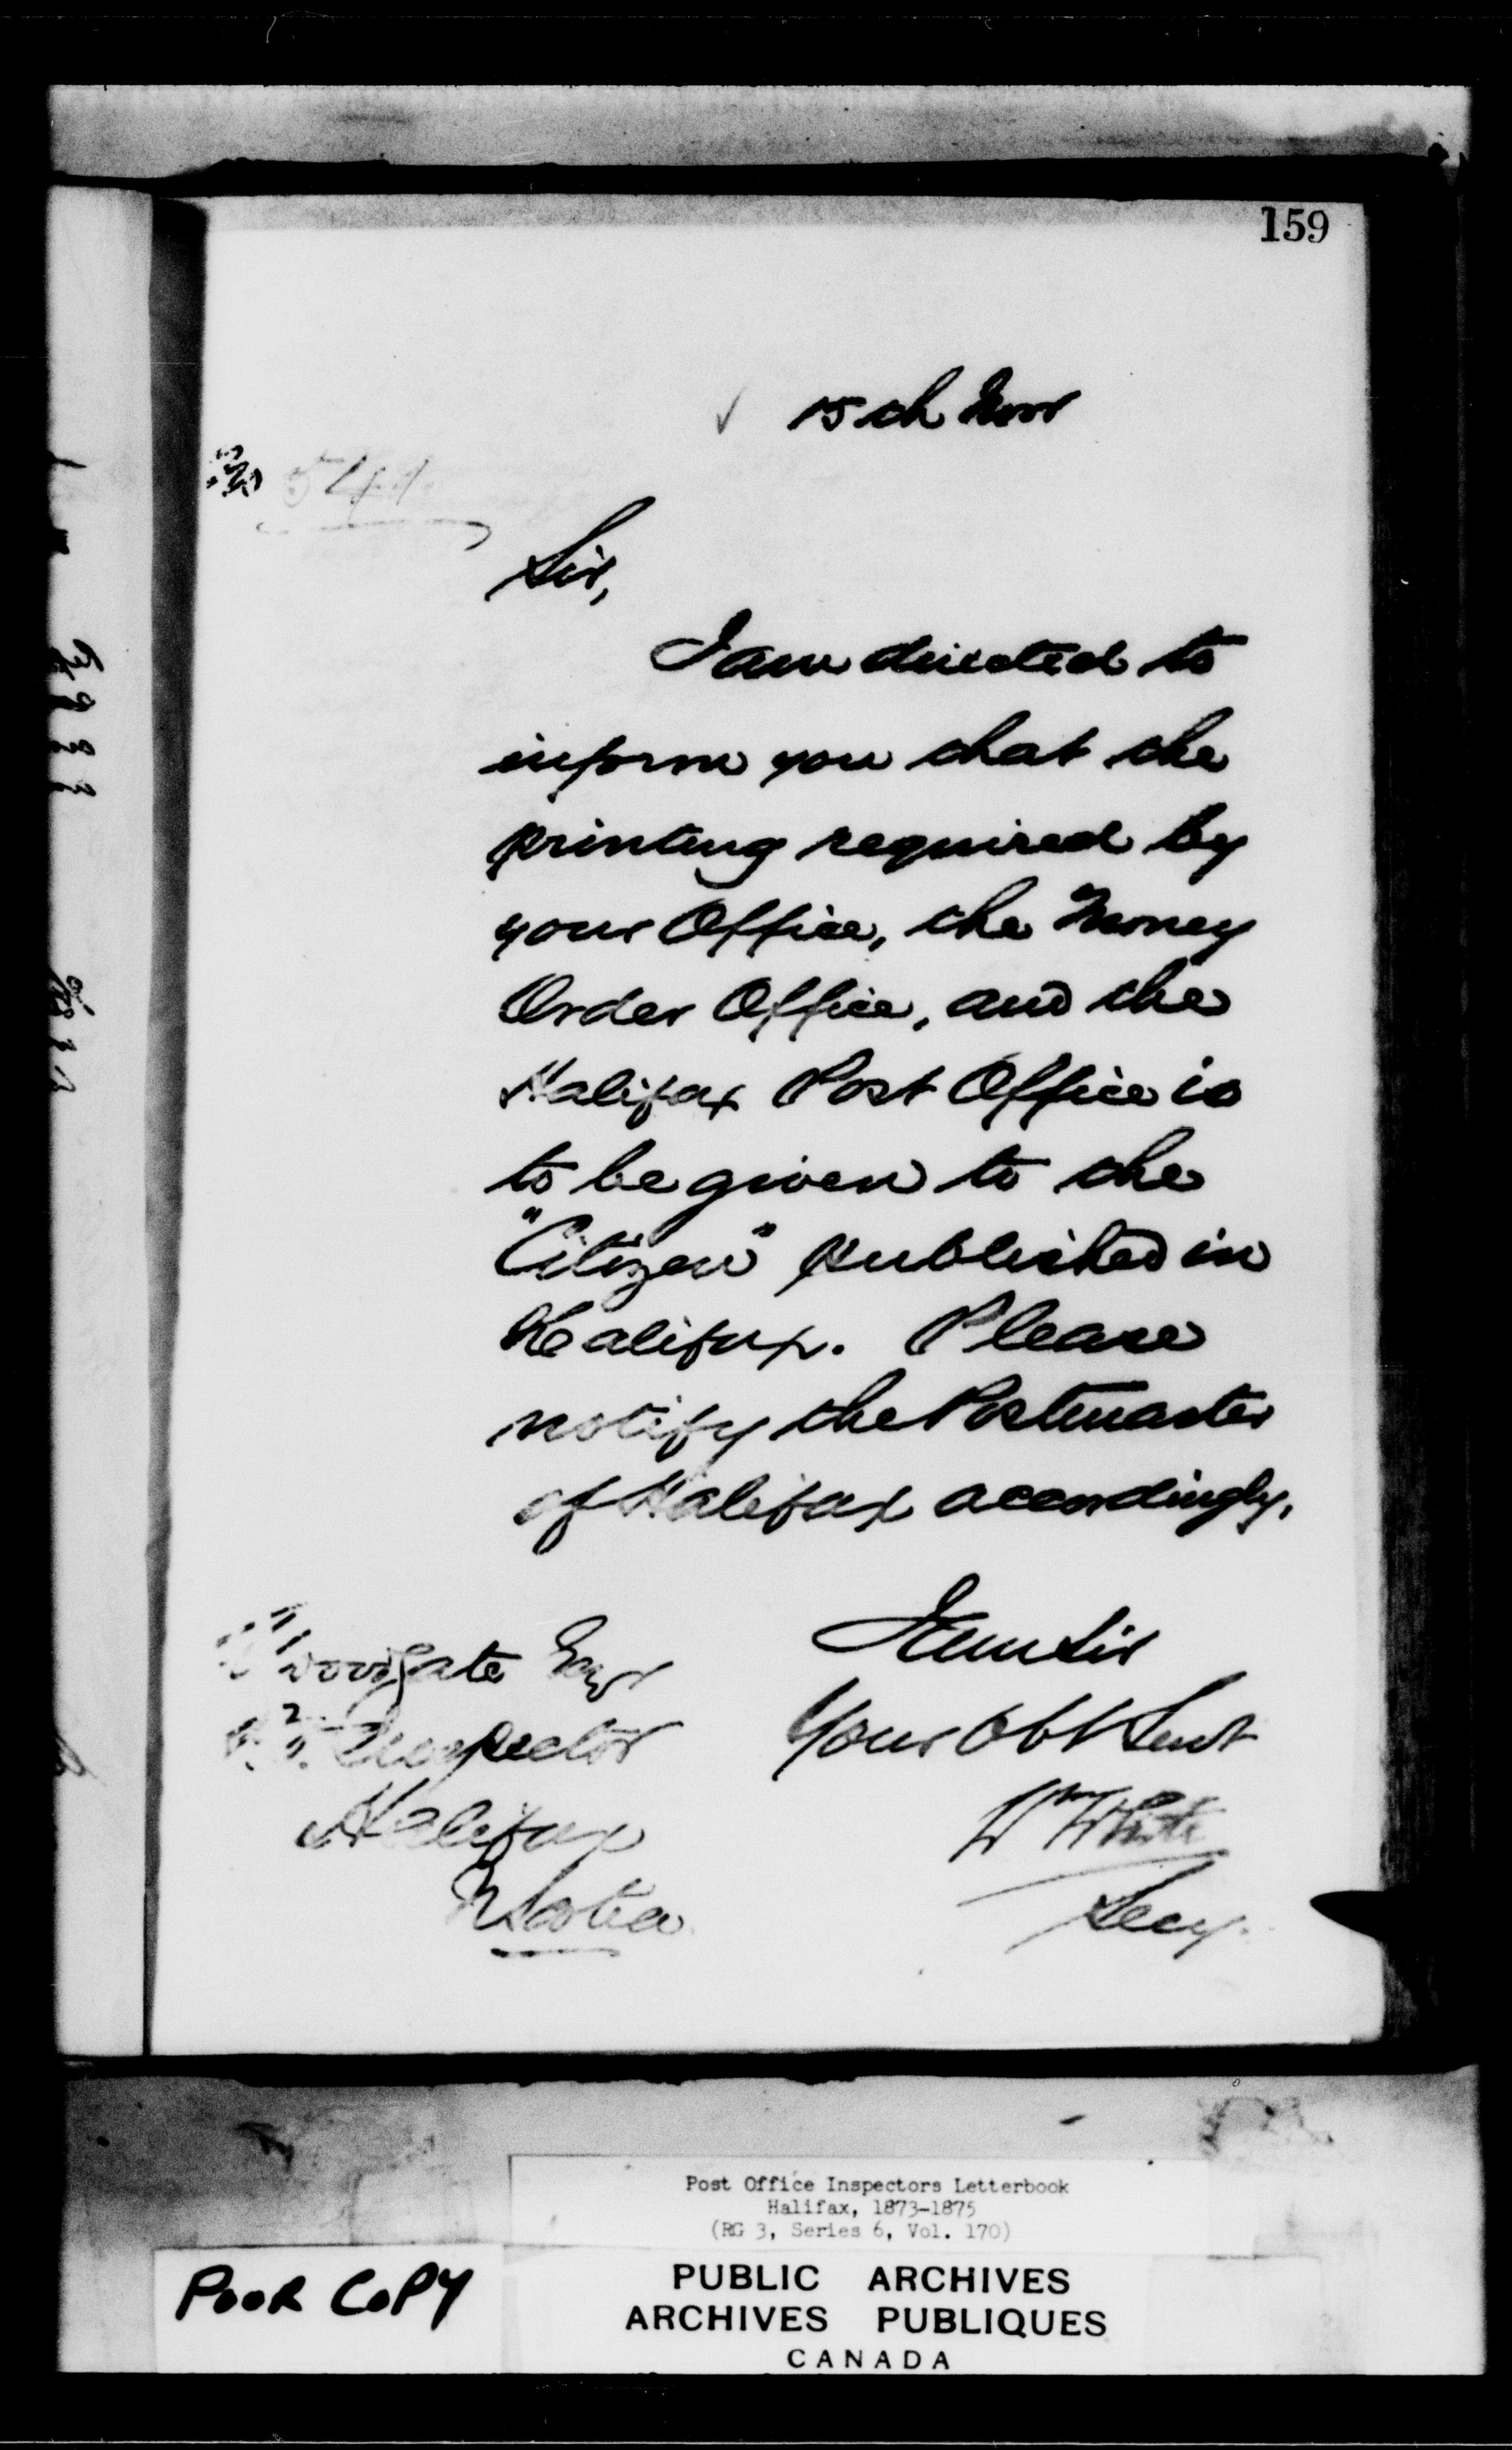 159
15th Novr
No 541
Sir,
I am directed to
inform you that the
printing required by
your Office, the Money
Order Office, and the
Halifax Post Office is
to be given to the
"Citizen" published in
Halifax. Please
notify the Postmaster
of Halifax accordingly.
I am Sir
Your Obt Servt
Wm White
Secy.
Woodgate Esqr
P.O. Inspector
Halifax
N Scotia
Post Office Inspectors Letterbook
Halifax, 1873-1875
(RG 3, Series 6, Vol. 170)
POOR COPY
PUBLIC ARCHIVES
ARCHIVES PUBLIQUES
CANADA